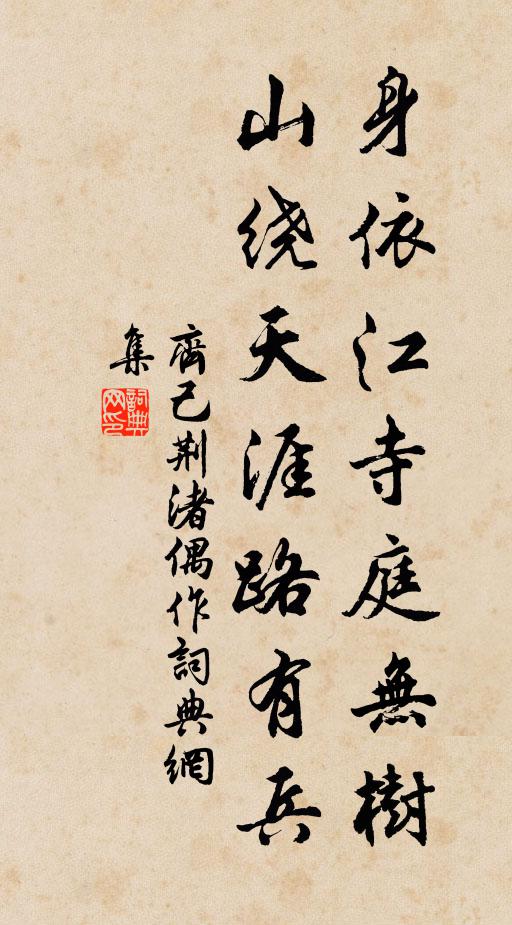 身依江寺庭無樹
山绕天涯路有兵
齊己荆渚偶作詞典網
集
詞典
网印